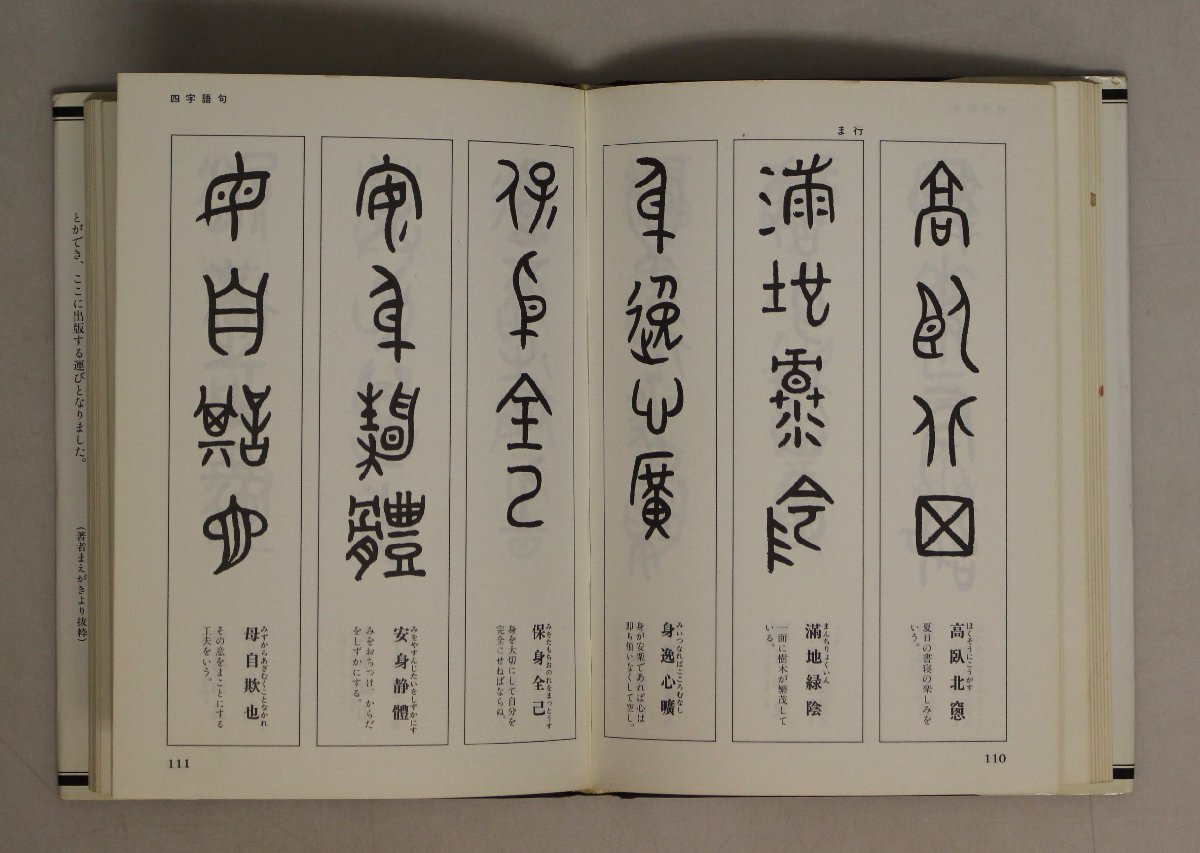 ま行
高臥北窓
高臥北窻
ほくそうにこうがす
夏日の書寝の楽しみを
いう。
満地緑陰
滿地緑陰
まんちりょくいん
一面に樹木が繁茂して
いる。
身逸心曠
身逸心曠
みいつなればこころむなし
身が安楽であれば心は
即ち煩いなくして空し。
110
四字語句
保身全己
保身全己
みをたもちおのれをまっとうす
身を大切にして自分を
完全にせねばならぬ。
安身静體
安身静體
みをやすんじたいをしずかにす
みをおちつけ、からだ
をしずかにする。
母自欺也
母自欺也
みずからあざむくことなかれ
その意をまことにする
工夫をいう。
111
とができ、ここに出版する運びとなりました。
(著者まえがきより抜粋)